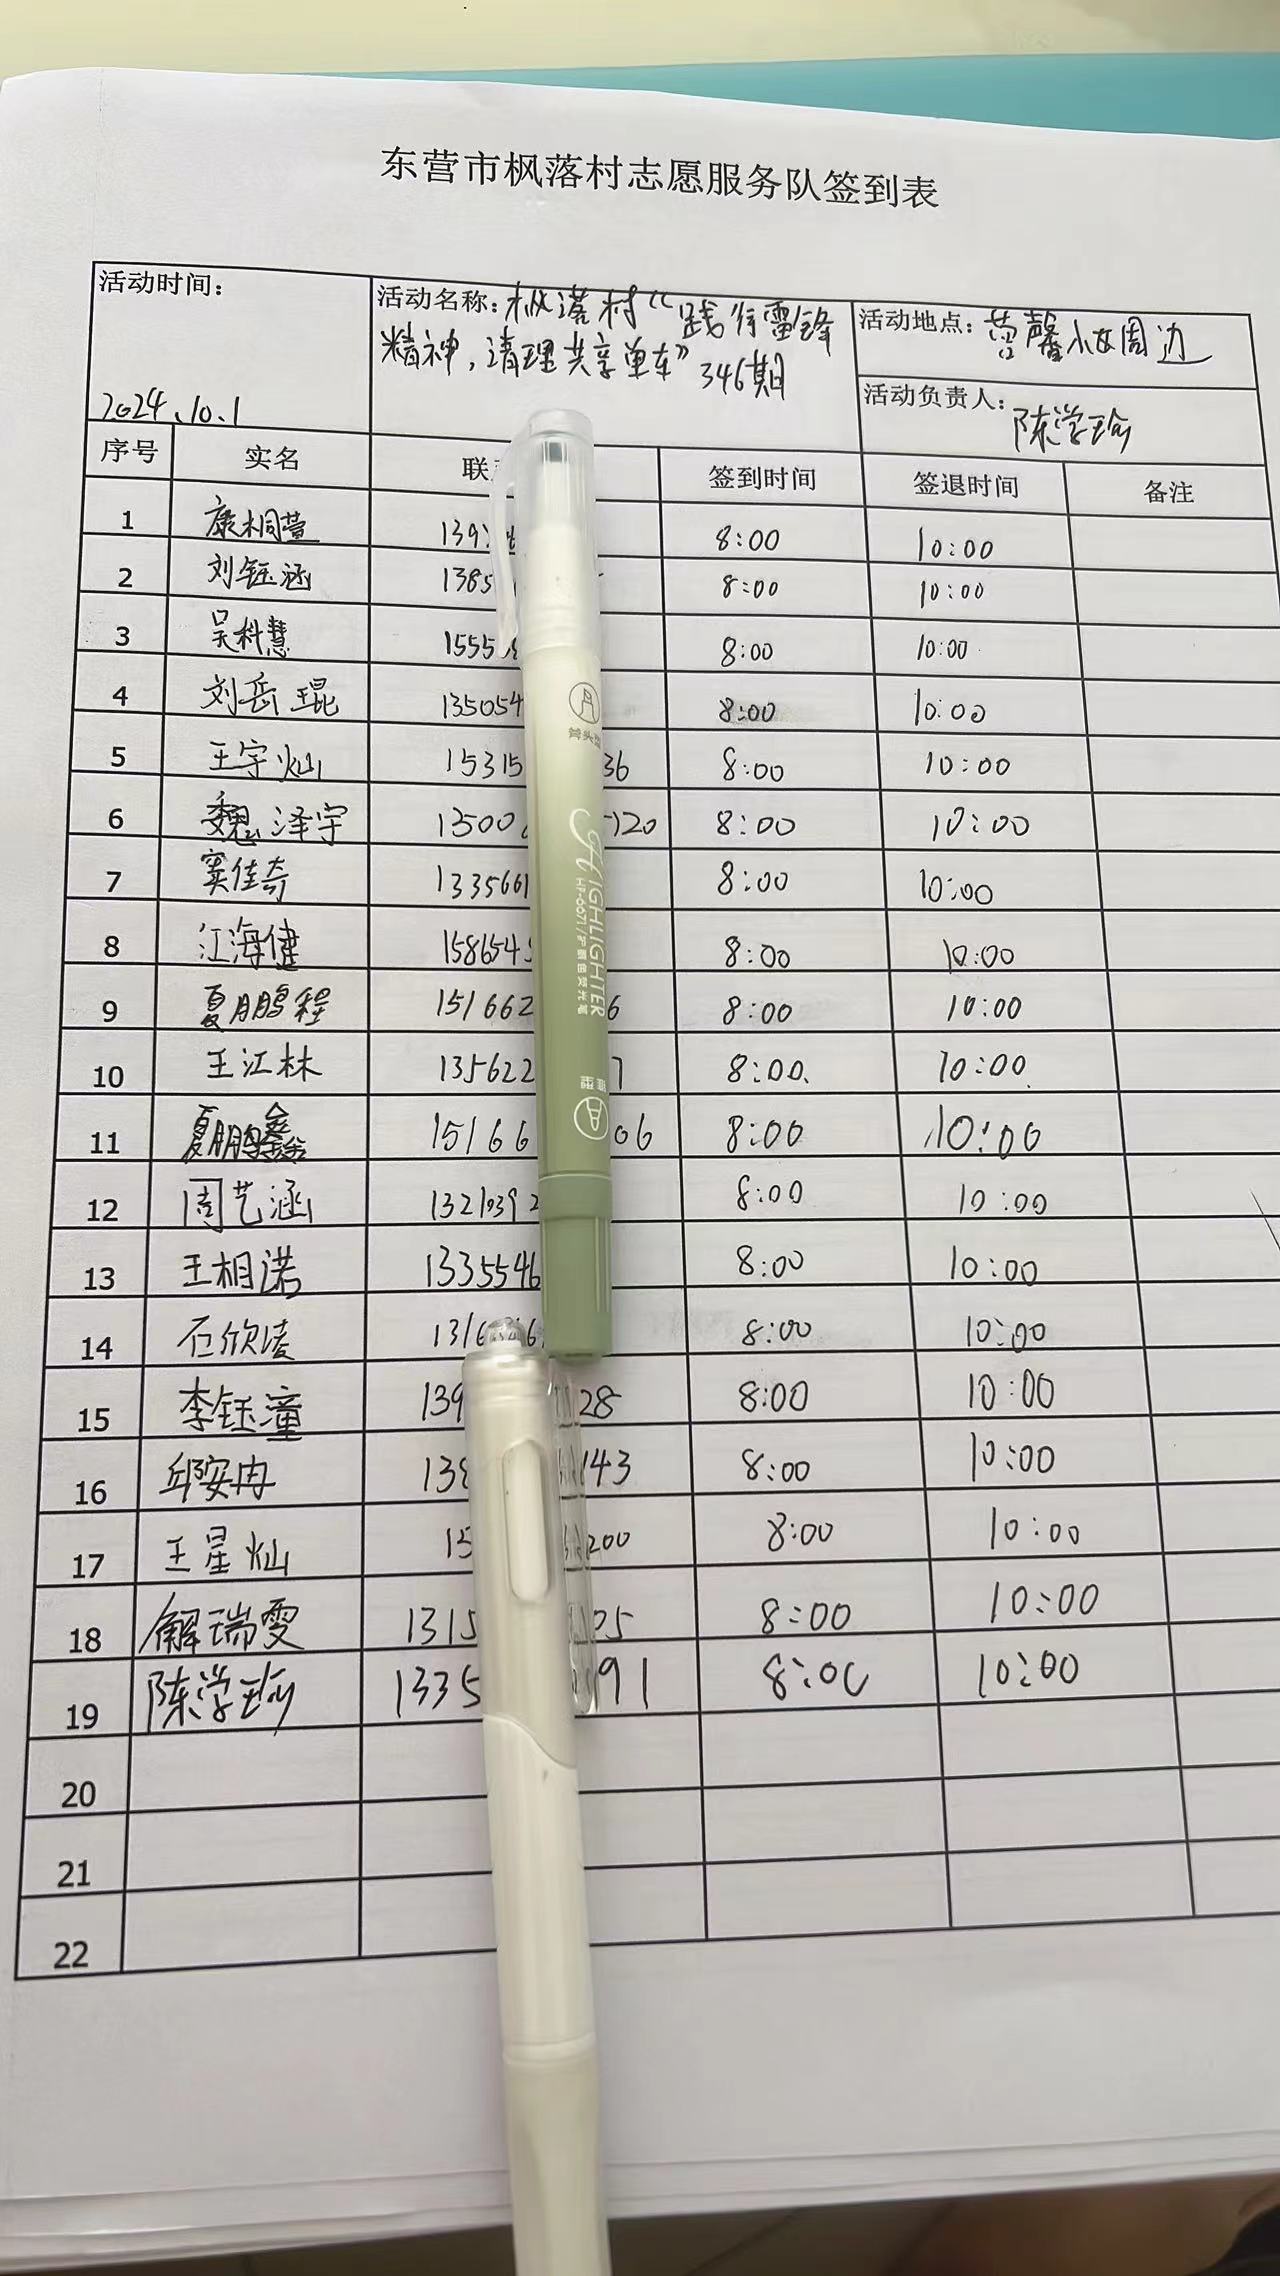 东营市枫落村志愿服务队签到表
活动时间：
2024.10.1
活动名称：枫落村“践行雷锋
精神，清理共享单车”346期
活动地点：营馨小区周边
活动负责人：陈学瑜
序号 实名 联 签到时间 签退时间 备注
1 康桐萱 139 8:00 10:00
2 刘钰涵 1385 8:00 10:00
3 吴科慧 1555 8:00 10:00
4 刘岳琨 135054 8:00 10:00
5 王宇灿 15315 36 8:00 10:00
6 魏泽宇 1500 120 8:00 10:00
7 窦佳奇 1335661 8:00 10:00
8 江海健 1586545 8:00 10:00
9 夏鹏程 151662 6 8:00 10:00
10 王江林 135622 7 8:00 10:00
11 夏鹏鑫 15166 06 8:00 10:00
12 周艺涵 13210392 8:00 10:00
13 王相诺 1335546 8:00 10:00
14 石欣凌 1316 8:00 10:00
15 李钰潼 139 28 8:00 10:00
16 邱安冉 138 143 8:00 10:00
17 王星灿 15 200 8:00 10:00
18 解瑞雯 1315 05 8:00 10:00
19 陈学瑜 1335 91 8:00 10:00
20
21
22
斧头型
HIGHLIGHTER
HP-6671/护眼色荧光笔